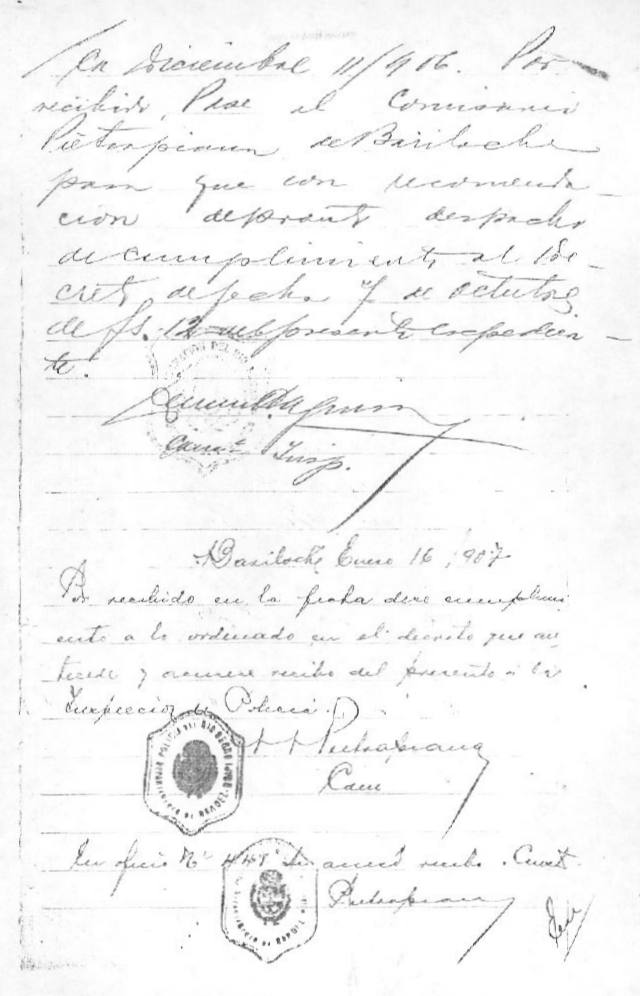 en Diciembre 11/906. Por
recibido, Pase al Comisario
Pietrapiana de Bariloche
para que con recomenda-
cion de pronto despacho
de cumplimiento al De-
creto de fecha 7 de Octubre
de fs. 12 del presente expedien-
te.
Insp.
Bariloche Enero 16, 907
Por recibido en la fecha dese cumplimi
ento a lo ordenado en el decreto que an
tecede y acusese recibo del presente a la
Inspeccion de Policia.
Pietrapiana
Com
POLICIA DEL RIO NEGRO
En oficio Nº 447 se acusó recibo. Const.
Pietrapiana